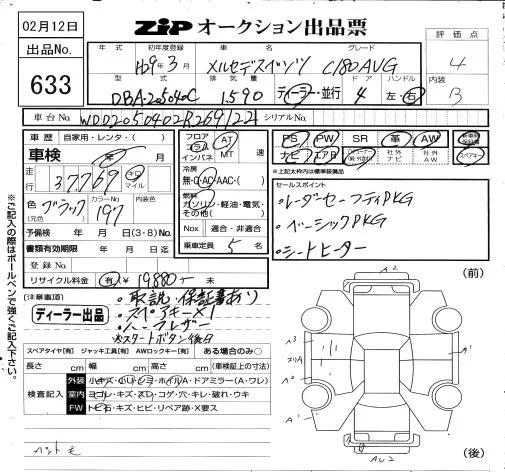 02月12日
ZIP オークション出品票
出品No.
633
年式 初年度登録 車名 グレード 評価点
H29年3月 メルセデスベンツ C180AVG 4
型式 排気量 ディーラー・並行 ドア ハンドル 内装
DBA-205040C 1590 4 左・右 B
車台No. WDD2050402R269122 シリアルNo.
車歴 自家用・レンタ( )
車検 年 月
走行 37769 キロ マイル
色(元色) ブラック カラーNo 197 内装色
予備検 年 月 日(3・8)No.
書類有効期限 年 月 日迄
登録No.
リサイクル料金 有 ¥19880- 未
フロア コラム インパネ AT MT 速
冷房 無・(・AC・AAC・( )
燃料 ガソリン・軽油・電気・その他( )
Nox 適合・非適合
乗車定員 5 名
PS PW SR 革 AW 新車時保証書
ナビ エアB 社外ナビ 社外AW スペアキー
※上記太枠内は標準装備品
セールスポイント
・レーダーセーフティPKG
・ベーシックPKG
・シートヒーター
(注意事項)
ディーラー出品
・取説・保証書あり
・スペアキー×1
・ハーフレザー
※スタートボタン後日
スペアタイヤ[有] ジャッキ工具[有] AWロックキー[有] ある場合のみ○
長さ cm 幅 cm 高さ cm (車検証上の寸法)
検査記入
外装 小キズ・小リペ・ホイルA・ドアミラー(A・ワレ)
室内 ヨゴレ・キズ・スレ・コゲ・穴・キレ・破れ・ウキ
FW トビ石・キズ・ヒビ・リペア跡・X要ス
ペット毛
※ご記入の際はボールペンで強くご記入下さい。
(前)
A2
A3
A2
A'
A'
AU2
(後)